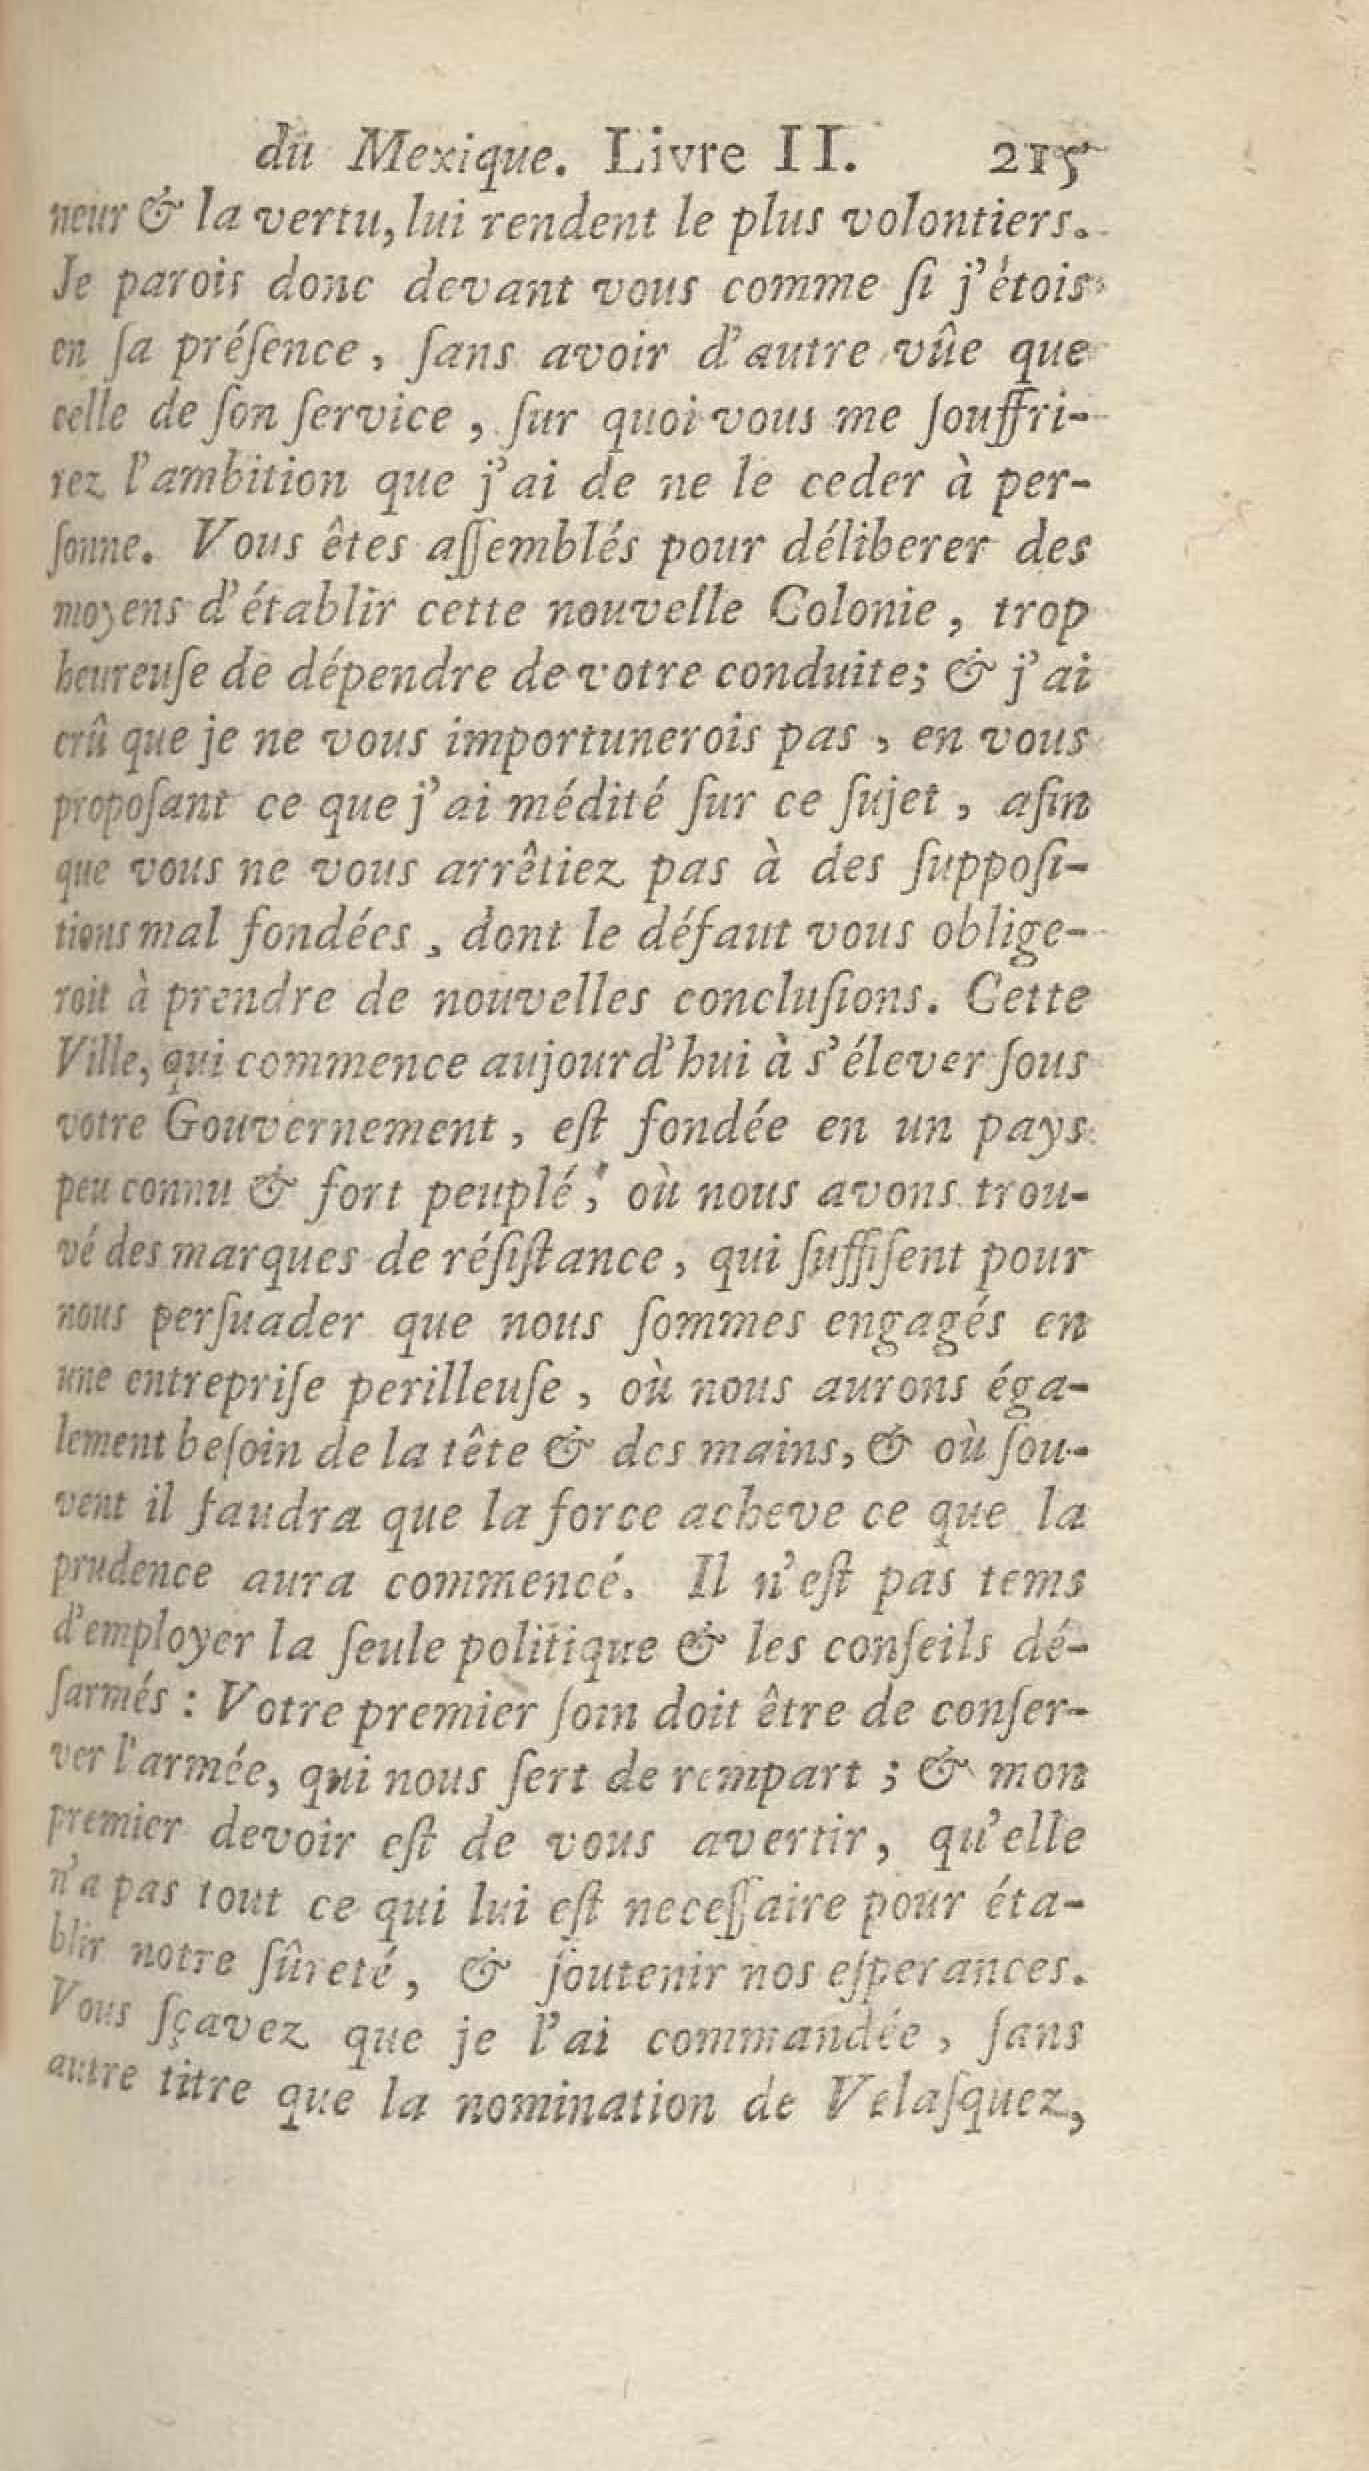 du Mexique. Livre II. 215
neur & la vertu, lui rendent le plus volontiers.
Je parois donc devant vous comme ſi j'étois
en ſa préſence, ſans avoir d'autre vûe que
celle de ſon ſervice, ſur quoi vous me ſouffri-
rez l'ambition que j'ai de ne le ceder à per-
ſonne. Vous êtes aſſemblés pour déliberer des
moyens d'établir cette nouvelle Colonie, trop
heureuſe de dépendre de votre conduite; & j'ai
crû que je ne vous importunerois pas, en vous
propoſant ce que j'ai médité ſur ce ſujet, afin
que vous ne vous arrêtiez pas à des ſuppoſi-
tions mal fondées, dont le défaut vous oblige-
roit à prendre de nouvelles concluſions. Cette
Ville, qui commence aujourd'hui à s'élever ſous
votre Gouvernement, eſt fondée en un pays
peu connu & fort peuplé, où nous avons trou-
vé des marques de réſiſtance, qui ſuffiſent pour
nous perſuader que nous ſommes engagés en
une entrepriſe perilleuſe, où nous aurons éga-
lement beſoin de la tête & des mains, & où ſou-
vent il faudra que la force acheve ce que la
prudence aura commencé. Il n'eſt pas tems
d'employer la ſeule politique & les conſeils dé-
ſarmés : Votre premier ſoin doit être de conſer-
ver l'armée, qui nous ſert de rempart ; & mon
premier devoir eſt de vous avertir, qu'elle
n'a pas tout ce qui lui eſt neceſſaire pour éta-
blir notre ſûreté, & ſoutenir nos eſperances.
Vous ſçavez que je l'ai commandée, ſans
autre titre que la nomination de Velaſquez,